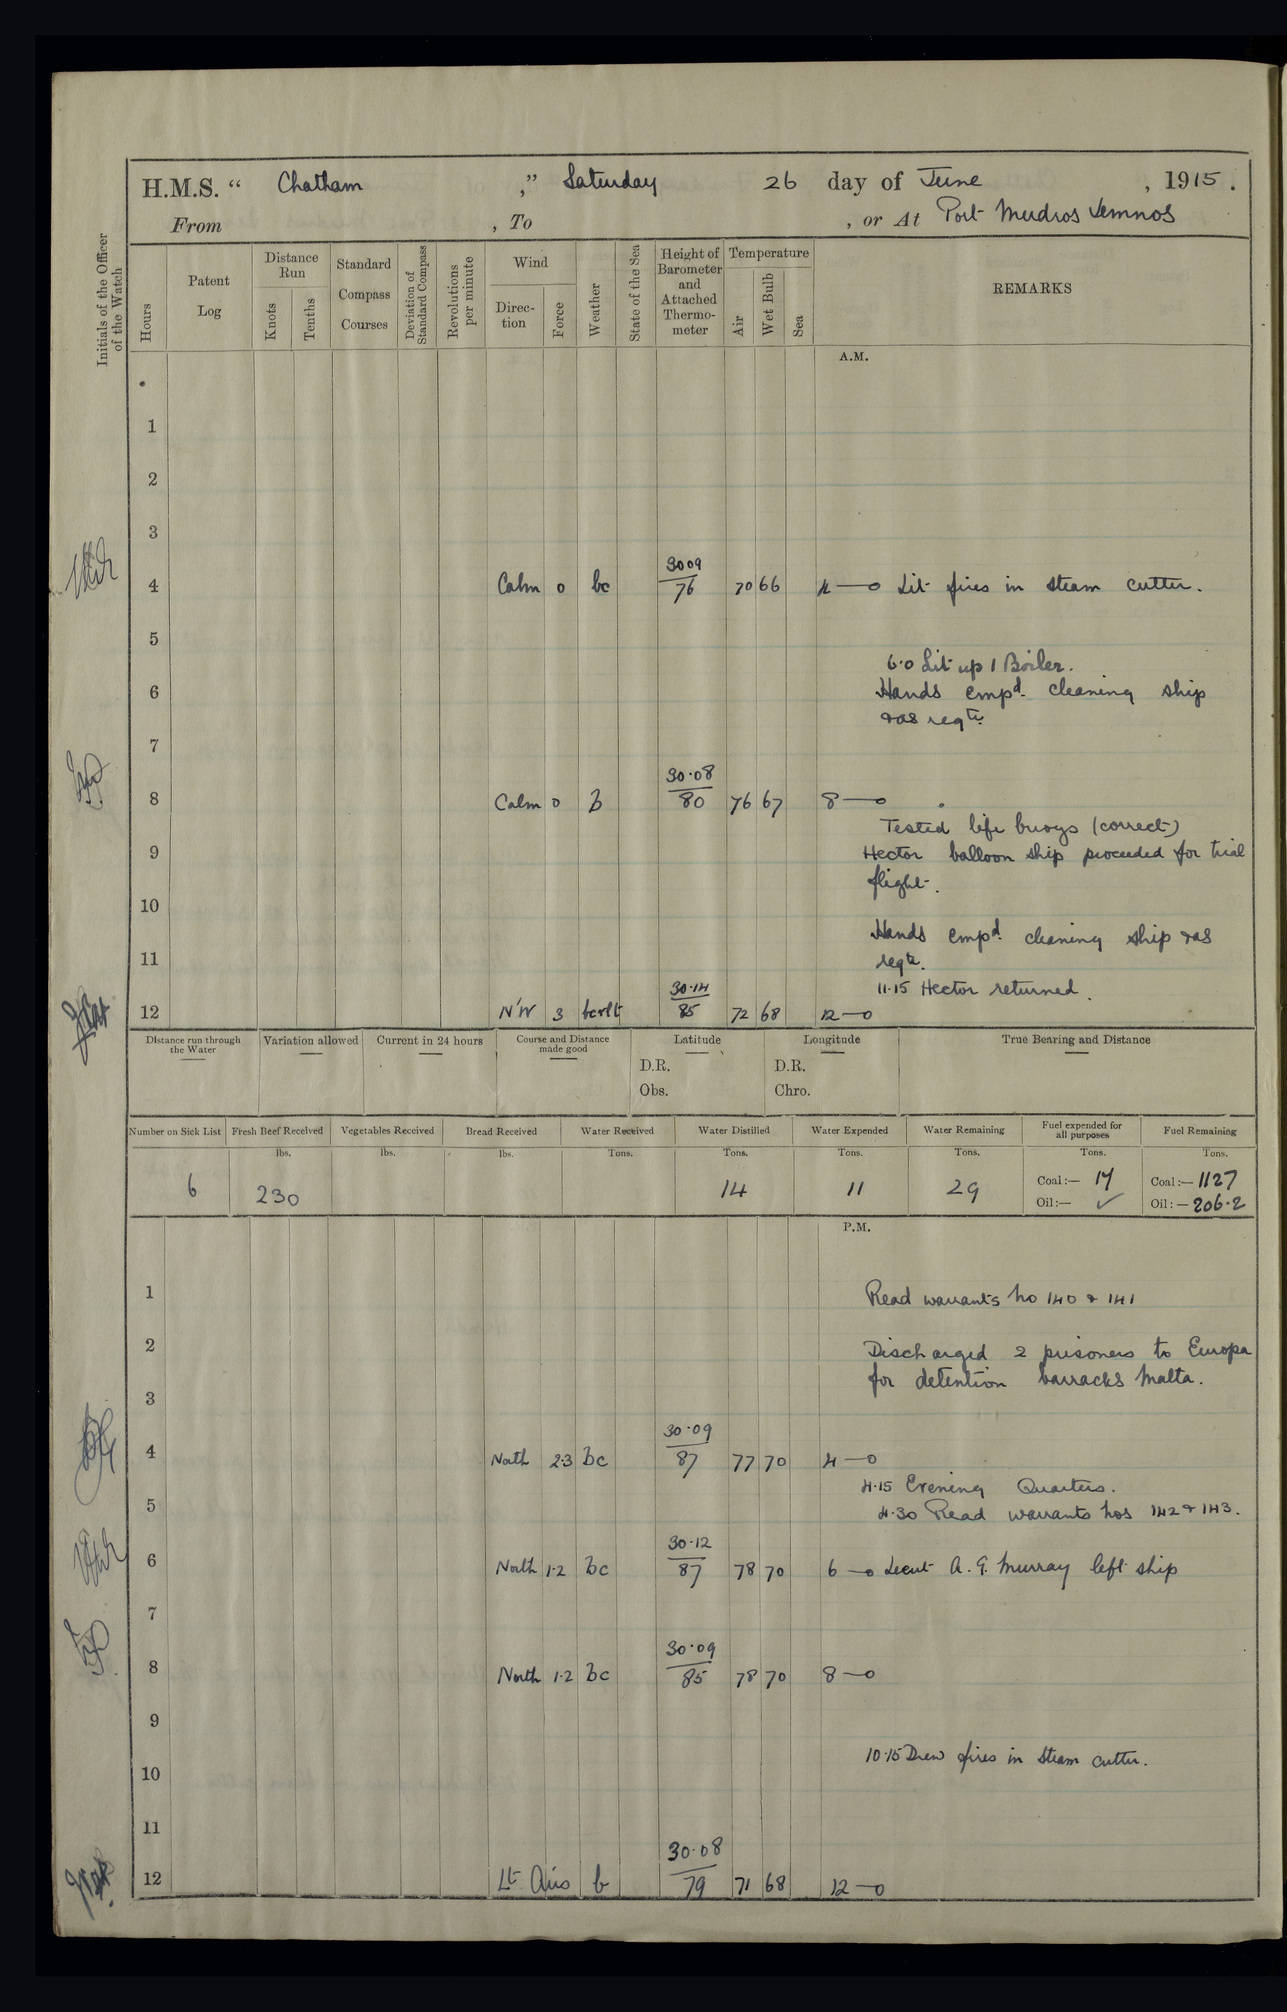 H.M.S. " Chatham ," Saturday 26 day of June , 1915 .
From , To , or At Port Mudros Lemnos
Initials of the Officer of the Watch
Hours
Patent Log
Distance Run
Knots
Tenths
Standard Compass Courses
Deviation of Standard Compass
Revolutions per minute
Wind
Direction
Force
Weather
State of the Sea
Height of Barometer and Attached Thermometer
Temperature
Air
Wet Bulb
Sea
REMARKS
A.M.
1
2
3
4 Calm 0 bc 3009/76 70 66 4—0 Lit fires in steam cutter.
5
6.0 Lit up 1 Boiler.
6 Hands empd. cleaning ship
&as reqte.
7
8 Calm 0 b 30.08/80 76 67 8—0
Tested life buoys (correct)
9 Hector balloon ship proceeded for trial
flight.
10
Hands empd. cleaning ship &as
11 reqte.
11.15 Hector returned.
12 N'W 3 30.14/85 72 68 12—0
Distance run through the Water
Variation allowed
Current in 24 hours
Course and Distance made good
Latitude
D.R.
Obs.
Longitude
D.R.
Chro.
True Bearing and Distance
Number on Sick List Fresh Beef Received Vegetables Received Bread Received Water Received Water Distilled Water Expended Water Remaining Fuel expended for all purposes Fuel Remaining
lbs. lbs. lbs. Tons. Tons. Tons. Tons. Tons. Tons.
6 230 14 11 29 Coal:— 17 Coal:— 1127
Oil:— ✓ Oil:— 206.2
P.M.
1 Read warrants No 140 & 141
2 Discharged 2 prisoners to Europa
for detention barracks Malta.
3
4 North 2.3 bc 30.09/87 77 70 4—0
4.15 Evening Quarters.
5 4.30 Read warrants Nos 142 & 143.
6 North 1.2 bc 30.12/87 78 70 6—0 Lieut A. G. Murray left ship
7
8 North 1.2 bc 30.09/85 78 70 8—0
9
10.15 Drew fires in steam cutter.
10
11
12 Lt Airs b 30.08/79 71 68 12—0